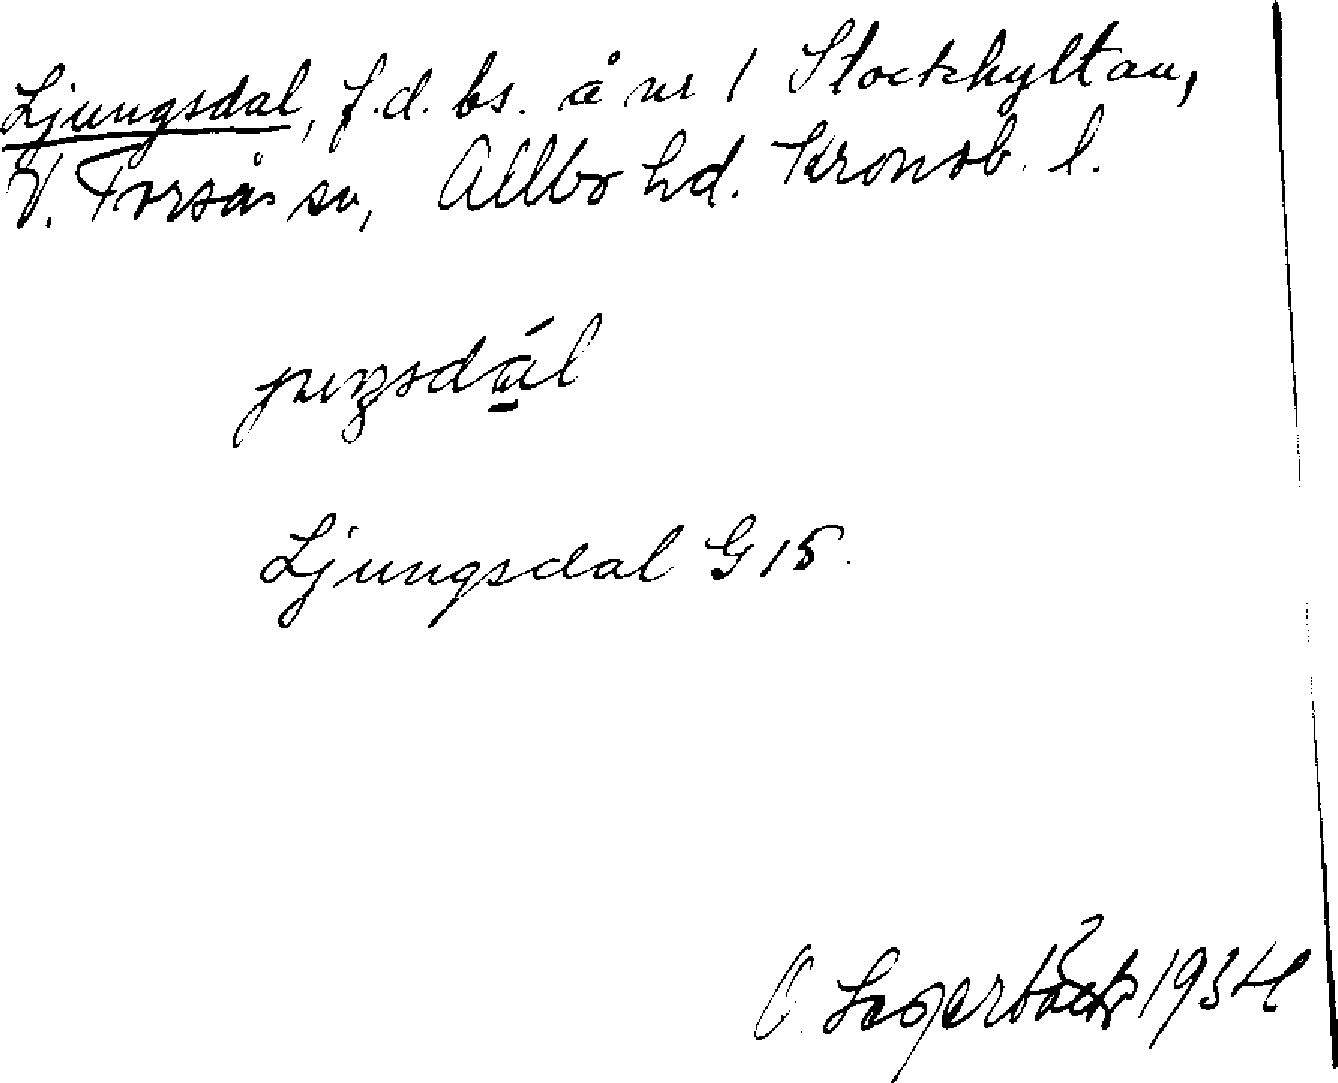 Ljungsdal, f.d. bs. å nr 1 Stockhyltan,
V. Torsås sn, Allbo hd. Kronob. l.
juŋsdál
Ljungsdal G 15.
O. Lagerbäck 1934